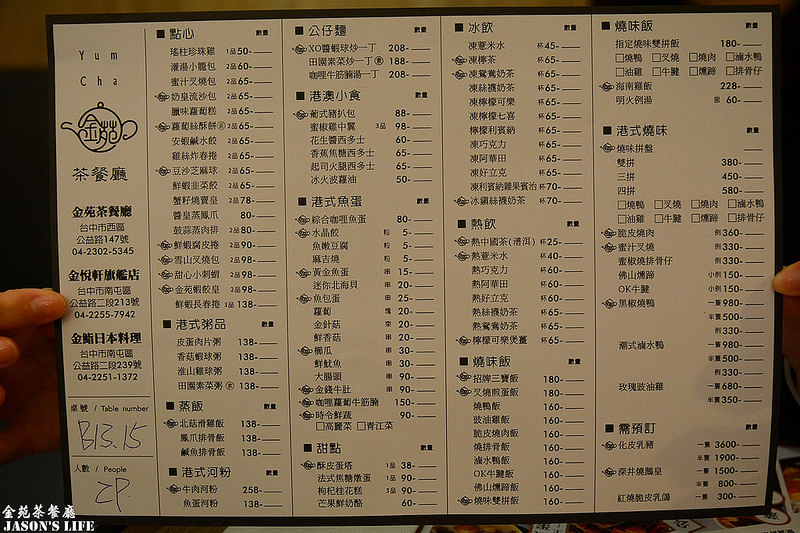 Yum
Cha
金苑
茶餐廳
金苑茶餐廳
台中市西區
公益路147號
04-2302-5345
金悅軒旗艦店
台中市南屯區
公益路二段213號
04-2255-7942
金鮨日本料理
台中市南屯區
公益路二段239號
04-2251-1372
桌號 / Table number
B13.15
人數 / People
2P.
■ 點心 數量
瑤柱珍珠雞 1品50-
灌湯小籠包 2品60-
蜜汁叉燒包 2品65-
奶皇流沙包 2品65-
臘味蘿蔔糕 2品65-
蘿蔔絲酥餅 2品65-
安蝦鹹水餃 2品65-
雞絲炸春捲 2品65-
豆沙芝麻球 2品65-
鮮蝦韭菜餃 2品65-
蟹籽燒賣皇 2品78-
醬皇蒸鳳爪 80-
鼓蒜蒸肉排 2品80-
鮮蝦腐皮捲 2品90-
雪山叉燒包 2品90-
甜心小刺蝟 2品90-
金苑蝦餃皇 2品90-
鮮蝦長春捲 3品138-
■ 港式粥品 數量
皮蛋肉片粥 138-
香菇蝦球粥 138-
淮山雞球粥 138-
田園素菜粥 138-
■ 蒸飯 數量
北菇滑雞飯 138-
鳳爪排骨飯 138-
鹹魚排骨飯 138-
■ 港式河粉 數量
牛肉河粉 258-
魚蛋河粉 138-
■ 公仔麵 數量
XO醬蝦球炒一丁 208-
田園素菜炒一丁 188-
咖哩牛筋腩湯一丁 208-
■ 港澳小食 數量
葡式豬扒包 88-
蜜椒雞中翼 3品 98-
花生醬西多士 60-
香蕉焦糖西多士 65-
起司火腿西多士 65-
冰火波蘿油 50-
■ 港式魚蛋 數量
綜合咖哩魚蛋 80-
水晶餃 粒 5-
魚嫩豆腐 粒 5-
麻吉燒 粒 5-
黃金魚蛋 串 15-
迷你北海貝 串 20-
魚包蛋 串 25-
蘿蔔 塊 20-
金針菇 束 20-
鮮香菇 串 20-
櫛瓜 串 30-
鮮魷魚 串 30-
大腸頭 串 90-
金錢牛肚 串 90-
咖哩蘿蔔牛筋腩 150-
時令鮮蔬 90-
□高麗菜 □青江菜
■ 甜點 數量
酥皮蛋塔 1品 38-
法式焦糖燉蛋 1品 90-
枸杞桂花糕 3品 90-
芒果鮮奶酪 60-
■ 冰飲 數量
凍薏米水 杯45-
凍檸茶 杯65-
凍鴛鴦奶茶 杯65-
凍絲襪奶茶 杯65-
凍檸檬可樂 杯65-
凍檸檬七喜 杯65-
檸檬利賓納 杯65-
凍巧克力 杯65-
凍阿華田 杯65-
凍好立克 杯65-
凍利賓納雜果賓治 杯70-
冰鎮絲襪奶茶 杯65-
■ 熱飲 數量
熱中國茶(普洱) 杯25-
熱薏米水 杯40-
熱巧克力 杯60-
熱阿華田 杯60-
熱好立克 杯60-
熱絲襪奶茶 杯60-
熱鴛鴦奶茶 杯60-
檸檬可樂煲薑 杯65-
■ 燒味飯 數量
招牌三寶飯 180-
叉燒煎蛋飯 180-
燒鴨飯 160-
豉油雞飯 160-
脆皮燒肉飯 160-
燒排骨飯 160-
滷水鴨飯 160-
OK牛腱飯 160-
佛山燻蹄飯 160-
燒味雙拼飯 160-
■ 燒味飯 數量
指定燒味雙拼飯 180-
□燒鴨 □叉燒 □燒肉 □滷水鴨
□油雞 □牛腱 □燻蹄 □排骨仔
海南雞飯 228-
明火例湯 盅 60-
■ 港式燒味 數量
燒味拼盤
雙拼 380-
三拼 450-
四拼 580-
□燒鴨 □叉燒 □燒肉 □滷水鴨
□油雞 □牛腱 □燻蹄 □排骨仔
脆皮燒肉 例360-
蜜汁叉燒 例330-
蜜椒燒排骨仔 例330-
佛山燻蹄 小例150-
OK牛腱 小例150-
黑椒燒鴨 一隻980-
半隻500-
例330-
潮式滷水鴨 一隻980-
半隻500-
例330-
玫瑰豉油雞 一隻680-
半隻350-
■ 需預訂 數量
化皮乳豬 一隻 3600-
半隻 1900-
深井燒鵝皇 一隻 1500-
半隻 800-
紅燒脆皮乳鴿 一隻 300-
金苑茶餐廳
JASON'S LIFE